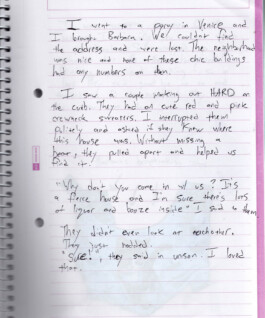 I went to a party in Venice and
I brought Barbara. We couldn't find
the address and were lost. The neighborhood
was nice and none of these chic buildings
had any numbers on them.
I saw a couple making out HARD on
the curb. They had on cute red and pink
crewneck sweaters. I interrupted them
politely and asked if they knew where
this house was. Without missing a
beat, they pulled apart and helped us
find it.
"Why don't you come in w/ us? It's
a fierce house and I'm sure there's lots
of liquor and booze inside" I said to them
They didn't even look at eachother.
They just nodded.
"Sure", they said in unison. I loved
that.